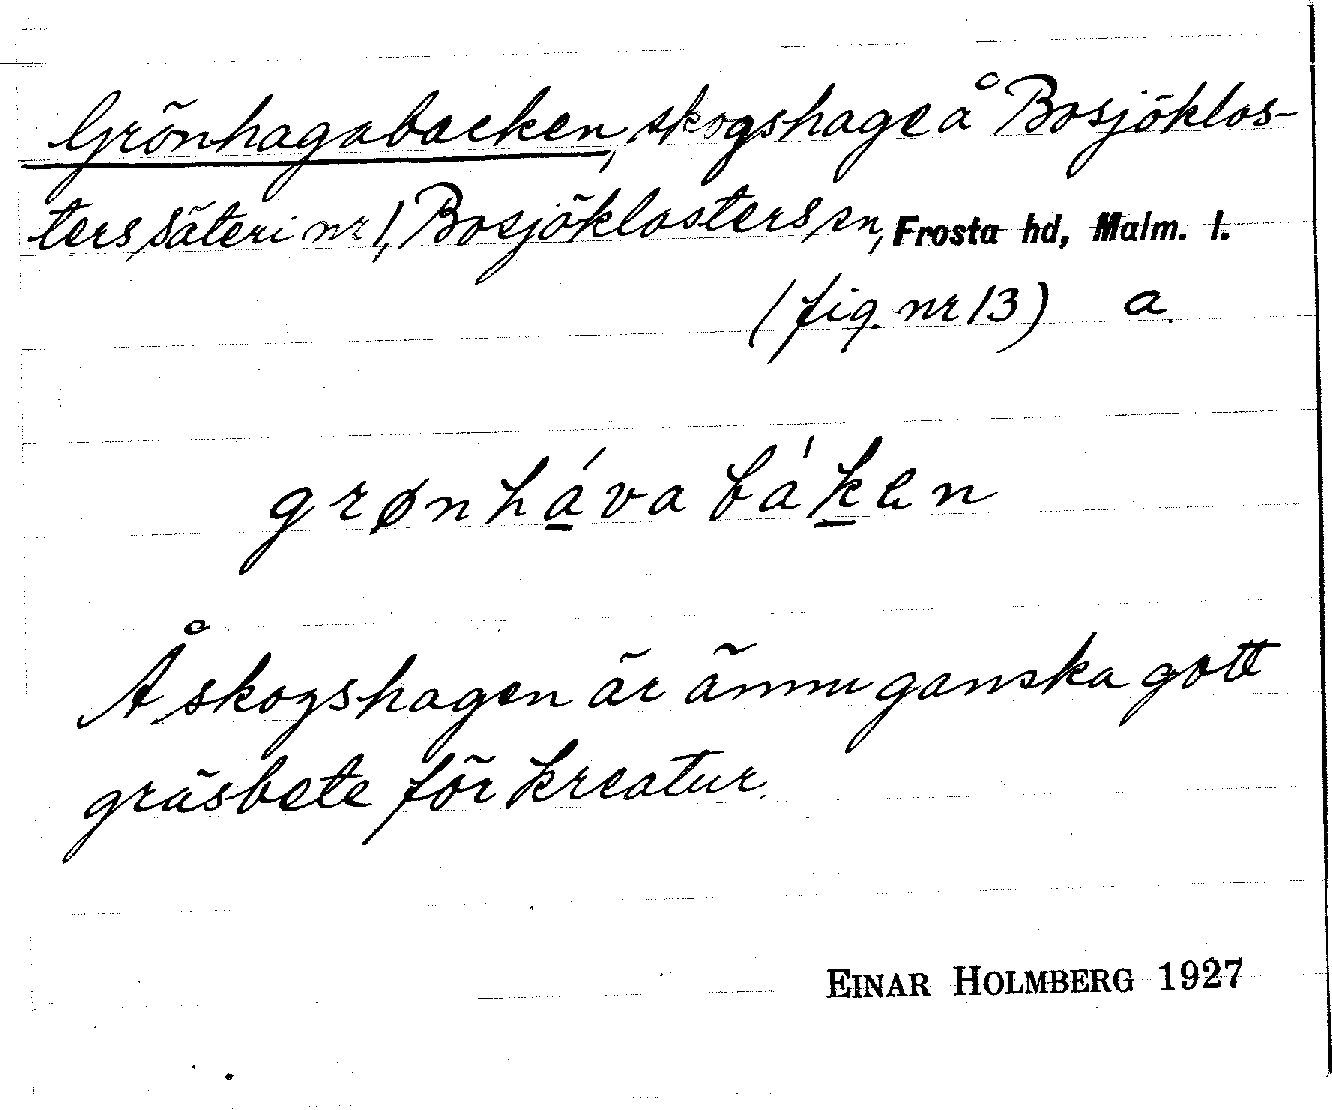 Grönhagabacken, skogshage å Bosjöklos-
ters säteri nr 1, Bosjöklosters sn, Frosta hd, Malm. l.
(fig. nr 13) a.
grønháva bákен
Å skogshagen är ännu ganska gott
gräsbete för kreatur.
EINAR HOLMBERG 1927